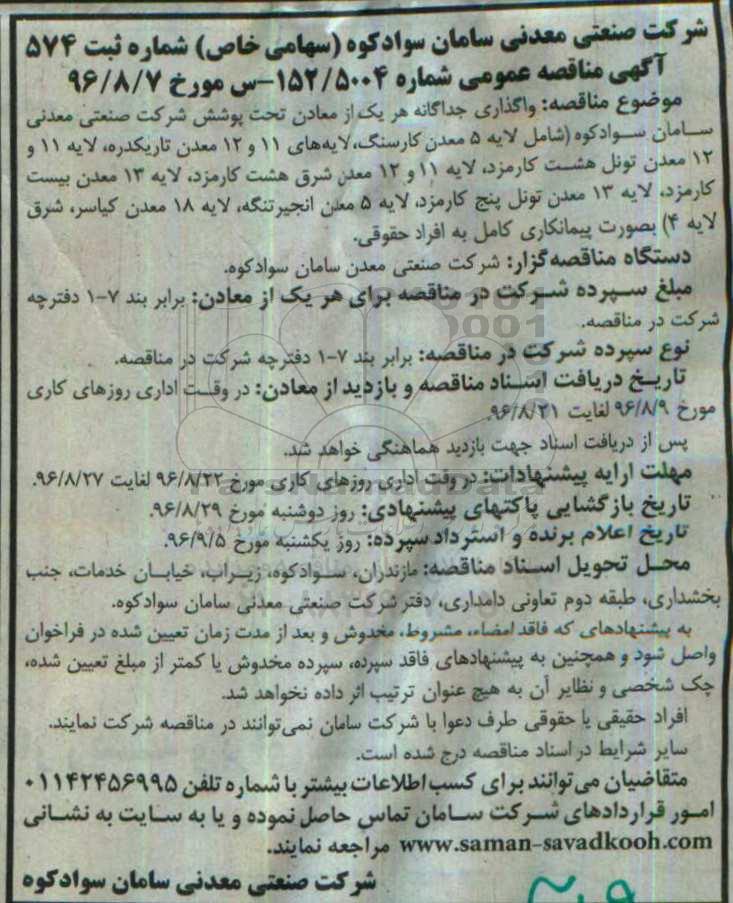 شرکت صنعتی معدنی سامان سوادکوه (سهامی خاص) شماره ثبت ۵۷۴
آگهی مناقصه عمومی شماره ۱۵۲/۵۰۰۴-س مورخ ۹۶/۸/۷
موضوع مناقصه: واگذاری جداگانه هر یک از معادن تحت پوشش شرکت صنعتی معدنی
سامان سوادکوه (شامل لایه ۵ معدن کارسنگ، لایه‌های ۱۱ و ۱۲ معدن تاریکدره، لایه ۱۱ و
۱۲ معدن تونل هشت کارمزد، لایه ۱۱ و ۱۲ معدن شرق هشت کارمزد، لایه ۱۳ معدن بیست
کارمزد، لایه ۱۳ معدن تونل پنج کارمزد، لایه ۵ معدن انجیرتنگه، لایه ۱۸ معدن کیاسر، شرق
لایه ۴) بصورت پیمانکاری کامل به افراد حقوقی.
دستگاه مناقصه‌گزار: شرکت صنعتی معدن سامان سوادکوه.
مبلغ سپرده شرکت در مناقصه برای هر یک از معادن: برابر بند ۷-۱ دفترچه
شرکت در مناقصه.
نوع سپرده شرکت در مناقصه: برابر بند ۷-۱ دفترچه شرکت در مناقصه.
تاریخ دریافت اسناد مناقصه و بازدید از معادن: در وقت اداری روزهای کاری
مورخ ۹۶/۸/۹ لغایت ۹۶/۸/۲۱.
پس از دریافت اسناد جهت بازدید هماهنگی خواهد شد.
مهلت ارایه پیشنهادات: در وقت اداری روزهای کاری مورخ ۹۶/۸/۲۲ لغایت ۹۶/۸/۲۷.
تاریخ بازگشایی پاکتهای پیشنهادی: روز دوشنبه مورخ ۹۶/۸/۲۹.
تاریخ اعلام برنده و استرداد سپرده: روز یکشنبه مورخ ۹۶/۹/۵.
محل تحویل اسناد مناقصه: مازندران، سوادکوه، زیراب، خیابان خدمات، جنب
بخشداری، طبقه دوم تعاونی دامداری، دفتر شرکت صنعتی معدنی سامان سوادکوه.
به پیشنهادهای که فاقد امضاء، مشروط، مخدوش و بعد از مدت زمان تعیین شده در فراخوان
واصل شود و همچنین به پیشنهادهای فاقد سپرده، سپرده مخدوش یا کمتر از مبلغ تعیین شده،
چک شخصی و نظایر آن به هیچ عنوان ترتیب اثر داده نخواهد شد.
افراد حقیقی یا حقوقی طرف دعوا با شرکت سامان نمی‌توانند در مناقصه شرکت نمایند.
سایر شرایط در اسناد مناقصه درج شده است.
متقاضیان می‌توانند برای کسب اطلاعات بیشتر با شماره تلفن ۰۱۱۴۲۴۵۶۹۹۵
امور قراردادهای شرکت سامان تماس حاصل نموده و یا به سایت به نشانی
www.saman-savadkooh.com مراجعه نمایند.
شرکت صنعتی معدنی سامان سوادکوه